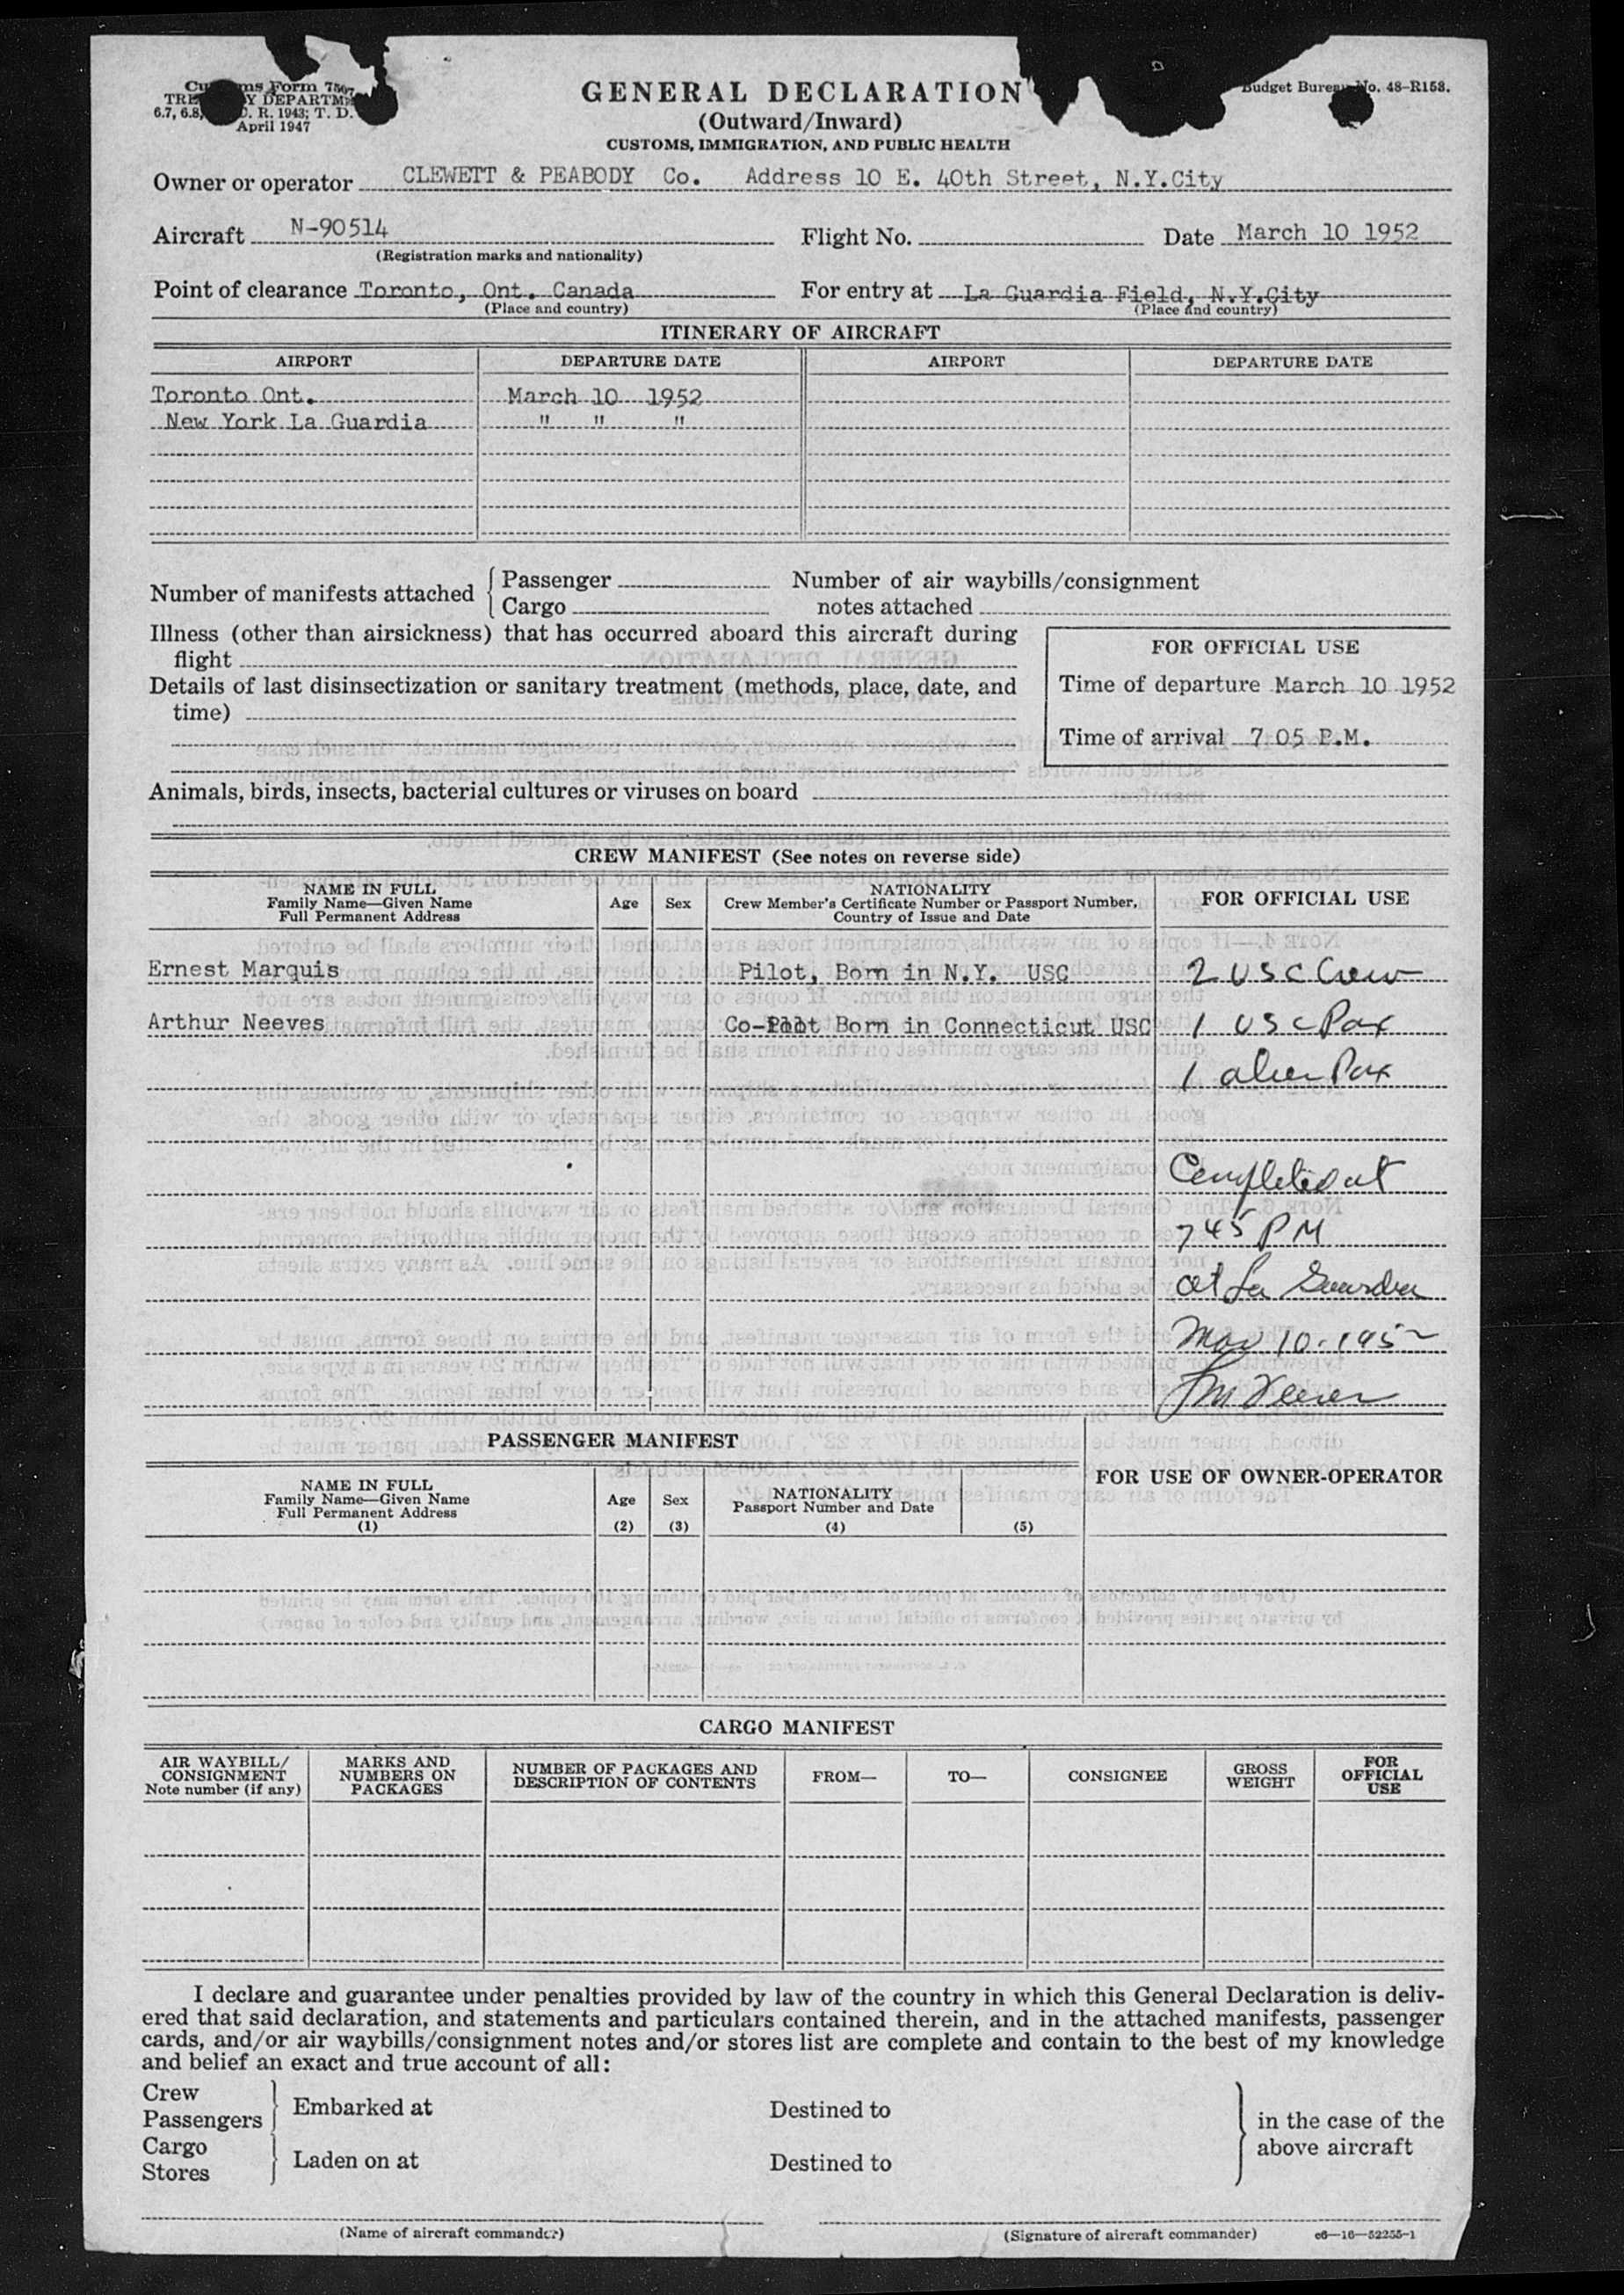 Customs Form 7507
TREASURY DEPARTMENT
6.7, 6.8, C. R. 1943; T. D.
April 1947
GENERAL DECLARATION
(Outward/Inward)
CUSTOMS, IMMIGRATION, AND PUBLIC HEALTH
Budget Bureau No. 48-R158.
Owner or operator CLEWETT & PEABODY Co. Address 10 E. 40th Street, N.Y.City
Aircraft N-90514 Flight No. Date March 10 1952
(Registration marks and nationality)
Point of clearance Toronto, Ont. Canada For entry at La Guardia Field, N.Y.City
(Place and country) (Place and country)
ITINERARY OF AIRCRAFT
AIRPORT DEPARTURE DATE AIRPORT DEPARTURE DATE
Toronto Ont. March 10 1952
New York La Guardia " " "
Number of manifests attached { Passenger Number of air waybills/consignment
Cargo notes attached
Illness (other than airsickness) that has occurred aboard this aircraft during
flight
FOR OFFICIAL USE
Details of last disinsectization or sanitary treatment (methods, place, date, and
time)
Time of departure March 10 1952
Time of arrival 7 05 P.M.
Animals, birds, insects, bacterial cultures or viruses on board
CREW MANIFEST (See notes on reverse side)
NAME IN FULL
Family Name—Given Name
Full Permanent Address
Age Sex
NATIONALITY
Crew Member's Certificate Number or Passport Number,
Country of Issue and Date
FOR OFFICIAL USE
Ernest Marquis Pilot, Born in N.Y. USC 2 USC Crew
Arthur Neeves Co-Pilot Born in Connecticut USC 1 USC Pax
1 alien Pax
Completed at
745 PM
at La Guardia
Mar 10-1952
PASSENGER MANIFEST
NAME IN FULL
Family Name—Given Name
Full Permanent Address
(1)
Age
(2)
Sex
(3)
NATIONALITY
Passport Number and Date
(4)
(5)
FOR USE OF OWNER-OPERATOR
CARGO MANIFEST
AIR WAYBILL/
CONSIGNMENT
Note number (if any)
MARKS AND
NUMBERS ON
PACKAGES
NUMBER OF PACKAGES AND
DESCRIPTION OF CONTENTS
FROM—
TO—
CONSIGNEE
GROSS
WEIGHT
FOR
OFFICIAL
USE
I declare and guarantee under penalties provided by law of the country in which this General Declaration is deliv-
ered that said declaration, and statements and particulars contained therein, and in the attached manifests, passenger
cards, and/or air waybills/consignment notes and/or stores list are complete and contain to the best of my knowledge
and belief an exact and true account of all:
Crew
Passengers } Embarked at Destined to
Cargo
Stores } Laden on at Destined to
} in the case of the
above aircraft
(Name of aircraft commander) (Signature of aircraft commander) c6—16—52255-1